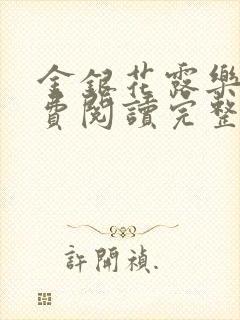 金銀花露樂
費閱讀完整
許開禎.